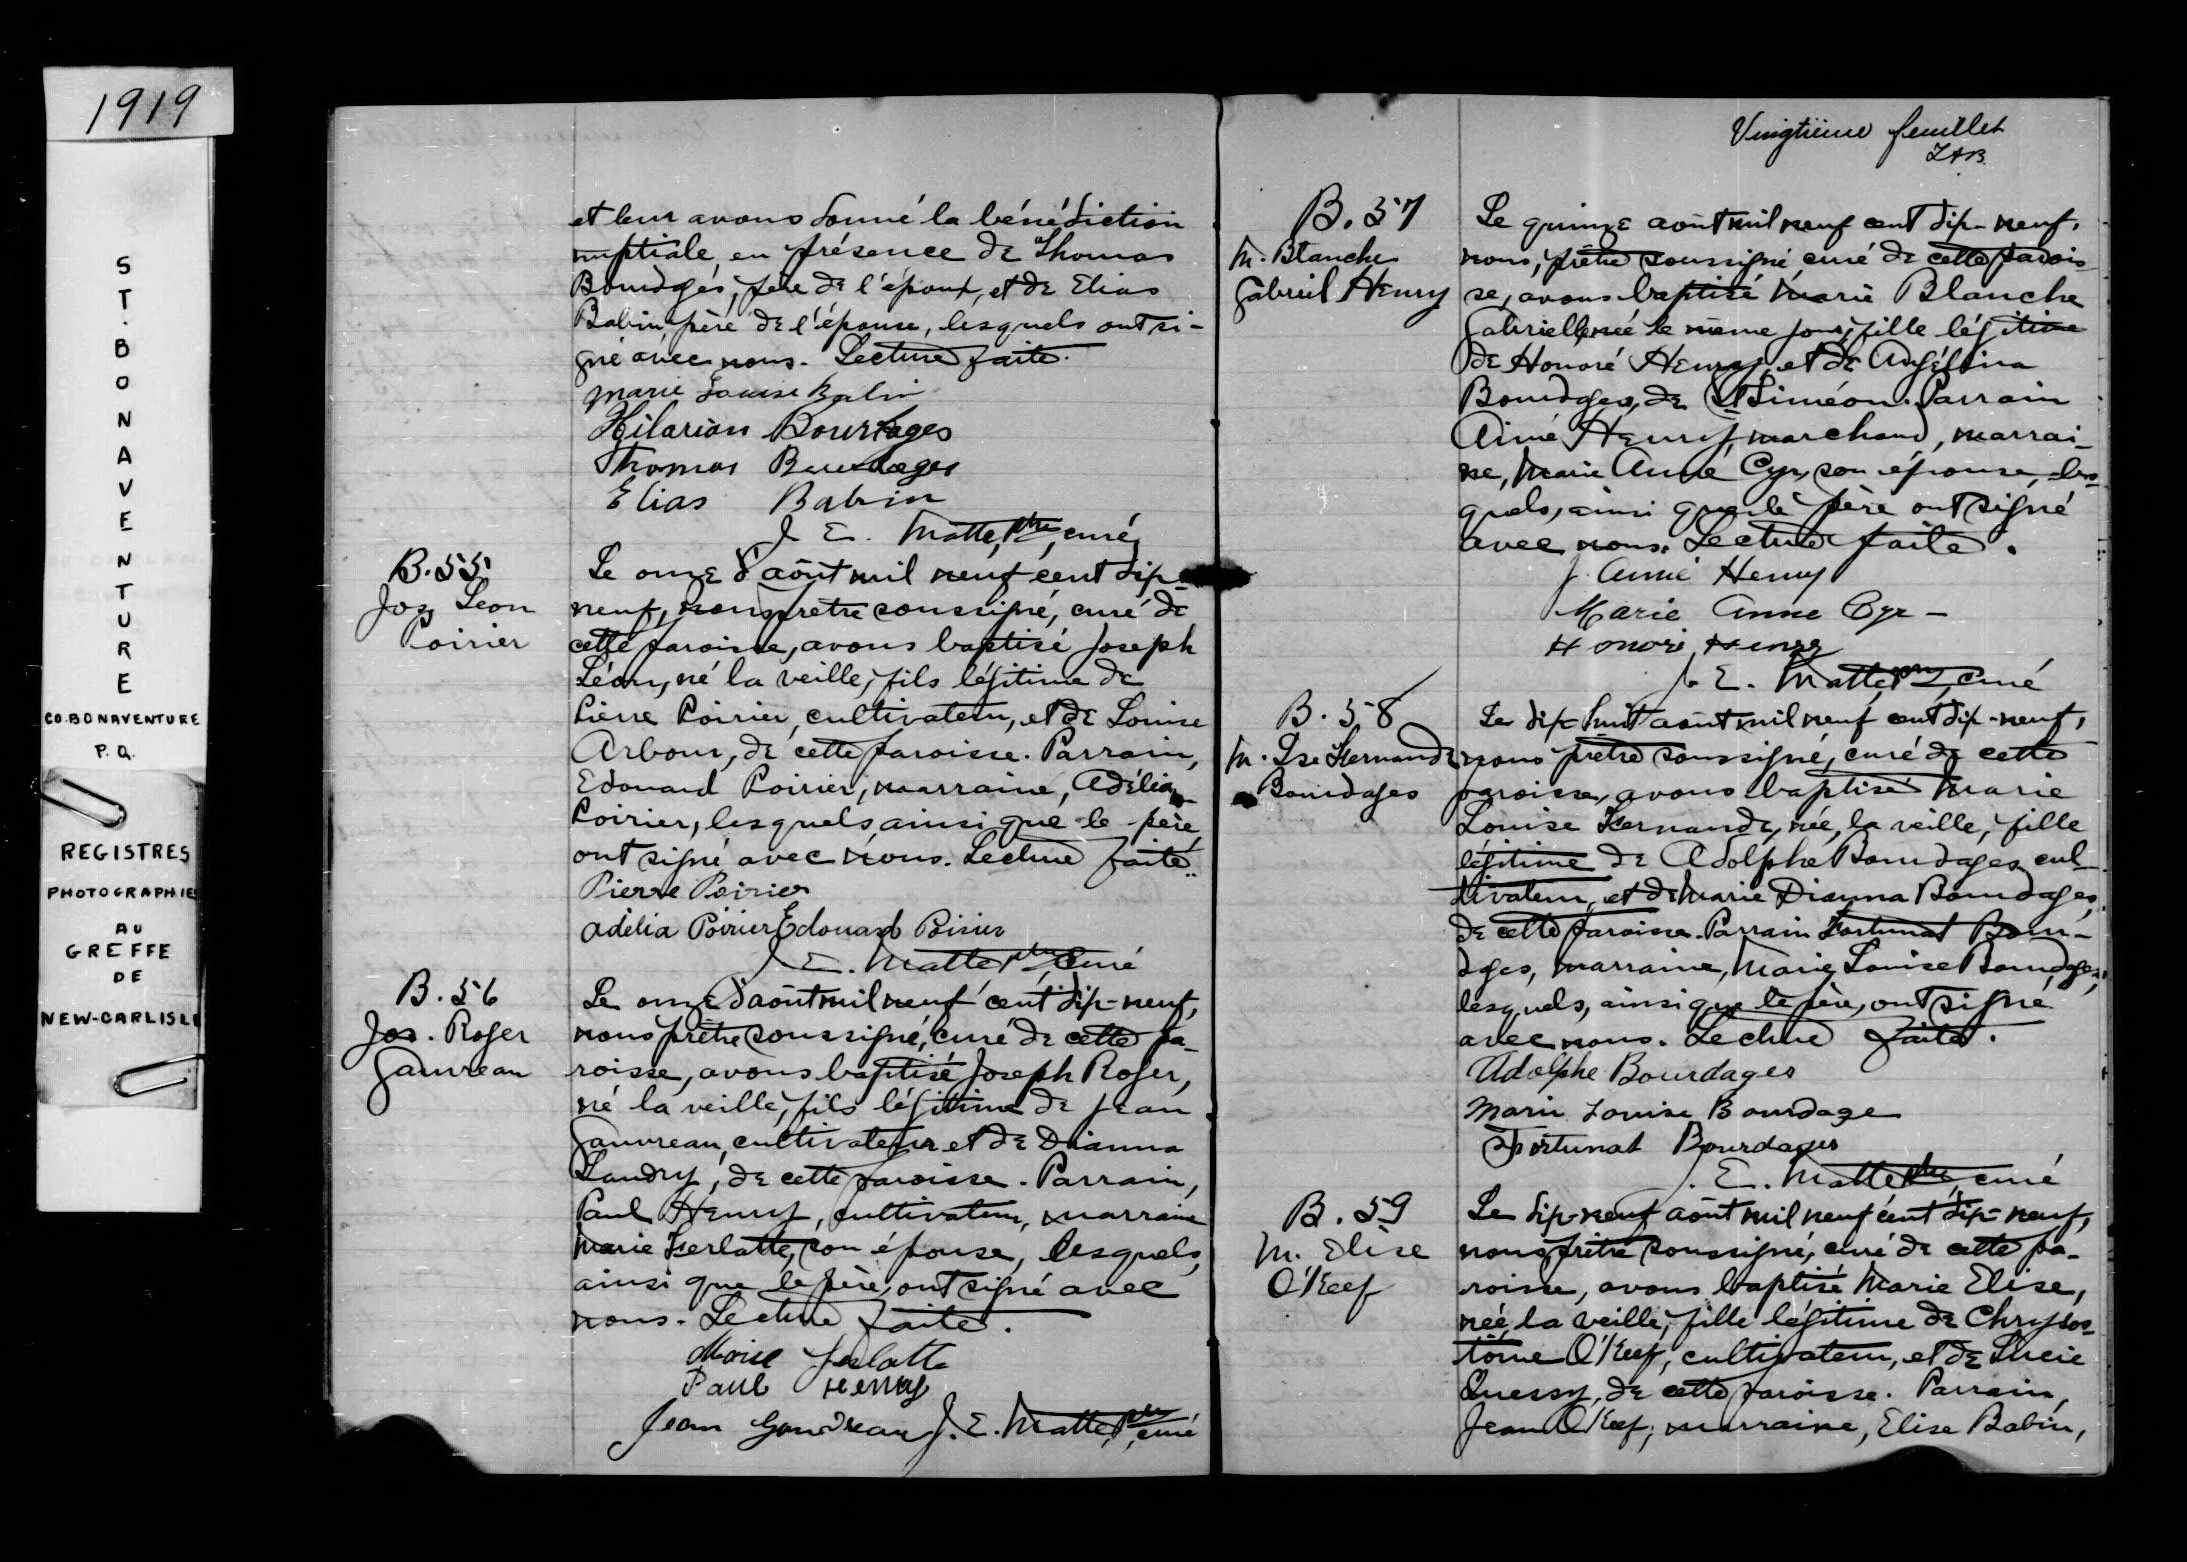 1919
ST. BONAVENTURE
CO. BONAVENTURE
P.Q.
REGISTRES
PHOTOGRAPHIES
AU
GREFFE
DE
NEW-CARLISLE
et leur avons donné la bénédiction
nuptiale, en présence de Thomas
Bourdages, père de l'époux, et de Elias
Babin, père de l'épouse, lesquels ont si-
gné avec nous. Lecture faite.
Marie Louise Babin
Hilarion Bourdages
Thomas Bourdages
Elias Babin
J. E. Matte, Ptre, curé
B. 55
Jos. Léon
Poirier
Le onze d'août mil neuf cent dix-
neuf, nous prêtre soussigné, curé de
cette paroisse, avons baptisé Joseph
Léon, né la veille, fils légitime de
Pierre Poirier, cultivateur, et de Louise
Arbour, de cette paroisse. Parrain,
Edouard Poirier, marraine, Adélia
Poirier, lesquels, ainsi que le père,
ont signé avec nous. Lecture faite.
Pierre Poirier
Adélia Poirier Edouard Poirier
J. E. Matte Ptre, curé
B. 56
Jos. Roger
Gauvreau
Le onze d'août mil neuf cent dix-neuf,
nous prêtre soussigné, curé de cette pa-
roisse, avons baptisé Joseph Roger,
né la veille, fils légitime de Jean
Gauvreau, cultivateur et de Dianna
Landry, de cette paroisse. Parrain,
Paul Henry, cultivateur, marraine
Marie Ferlatte, son épouse, lesquels,
ainsi que le père, ont signé avec
nous. Lecture faite.
Marie Ferlatte
Paul Henry
Jean Gauvreau J. E. Matte, Ptre, curé
Vingtième feuillet
B. 57
M. Blanche
Gabriel Henry
Le quinze août mil neuf cent dix-neuf,
nous, prêtre soussigné, curé de cette parois-
se, avons baptisé Marie Blanche
Gabrielle, née le même jour, fille légitime
de Honoré Henry, et de Angélina
Bourdages, de St Siméon. Parrain
Aimé Henry, marchand, marrai-
ne, Marie Anne Cyr, son épouse, les-
quels, ainsi que le père ont signé
avec nous. Lecture faite.
J. Aimé Henry
Marie Anne Cyr -
Honoré Henry
J. E. Matte Ptre, curé
B. 58
M. Lse Fernande
Bourdages
Le dix-huit août mil neuf cent dix-neuf,
nous prêtre soussigné, curé de cette
paroisse, avons baptisé Marie
Louise Fernande, née, la veille, fille
légitime de Adolphe Bourdages, cul-
tivateur, et de Marie Dianna Bourdages,
de cette paroisse. Parrain Fortunat Bour-
dages, marraine, Marie Louise Bourdages,
lesquels, ainsi que le père, ont signé
avec nous. Lecture faite.
Adolphe Bourdages
Marie Louise Bourdage
Fortunat Bourdages
J. E. Matte Ptre, curé
B. 59
M. Elise
O'Keef
Le dix-neuf août mil neuf cent dix-neuf,
nous prêtre soussigné, curé de cette pa-
roisse, avons baptisé Marie Elise,
née la veille, fille légitime de Chrysos-
tôme O'Keef, cultivateur, et de Lucie
Quessy, de cette paroisse. Parrain,
Jean O'Keef, marraine, Elise Babin,